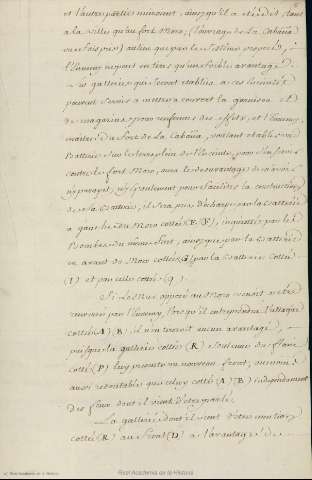 et l'autre parties minoront, ainsy qu'il a eté dit tant
a la Ville qu'au fort Moro, (l'ouvrage de la Cabaña
ne fais pas) au lieu que par le sistême proposé,
l'Ennemy ne peut en tirer qu'une foible avantage
Les galleries qui seront etablies a ces
peuvent servir a mettre a couvert la garnison et
de magazins pour renfermer des effets, et l'Ennemy
maitre du Fort de la Cabaña, voulant etablir une
Batterie sur le terreplein de l'Enceinte, pour s'en servir
contre le fort Moro, aura le desavantage de n'avoir
ny parapet, ny pour faciliter la construction
de sa Batterie, il sera pris d'echarpe par la batterie
a gauche du Moro cottée (E. F), inquiettée par les
Bombes du même fort, ainsy que par la Batterie
en avant du Moro cottée (G) par la Batterie cottée
(I) et par celles cottée (9).
Si le Mur opposé au Moro venoit a etre
renversé par l'Ennemy, lorsqu'il entreprendra l'attaque
cottée (A) (B), il n'en tiroit aucun avantage,
puisque la gallerie cottée (R) soutenue du flanc
cottée (P) luy presente un nouveau front, au moins
aussi redoutable que celuy cottée (A) (B) independament
des feux dont il vient d'etre parlé.
La gallerie dont il vient d'etre mention
cottée (R) au front (D) a l'avantage de
Real Academia de la Historia